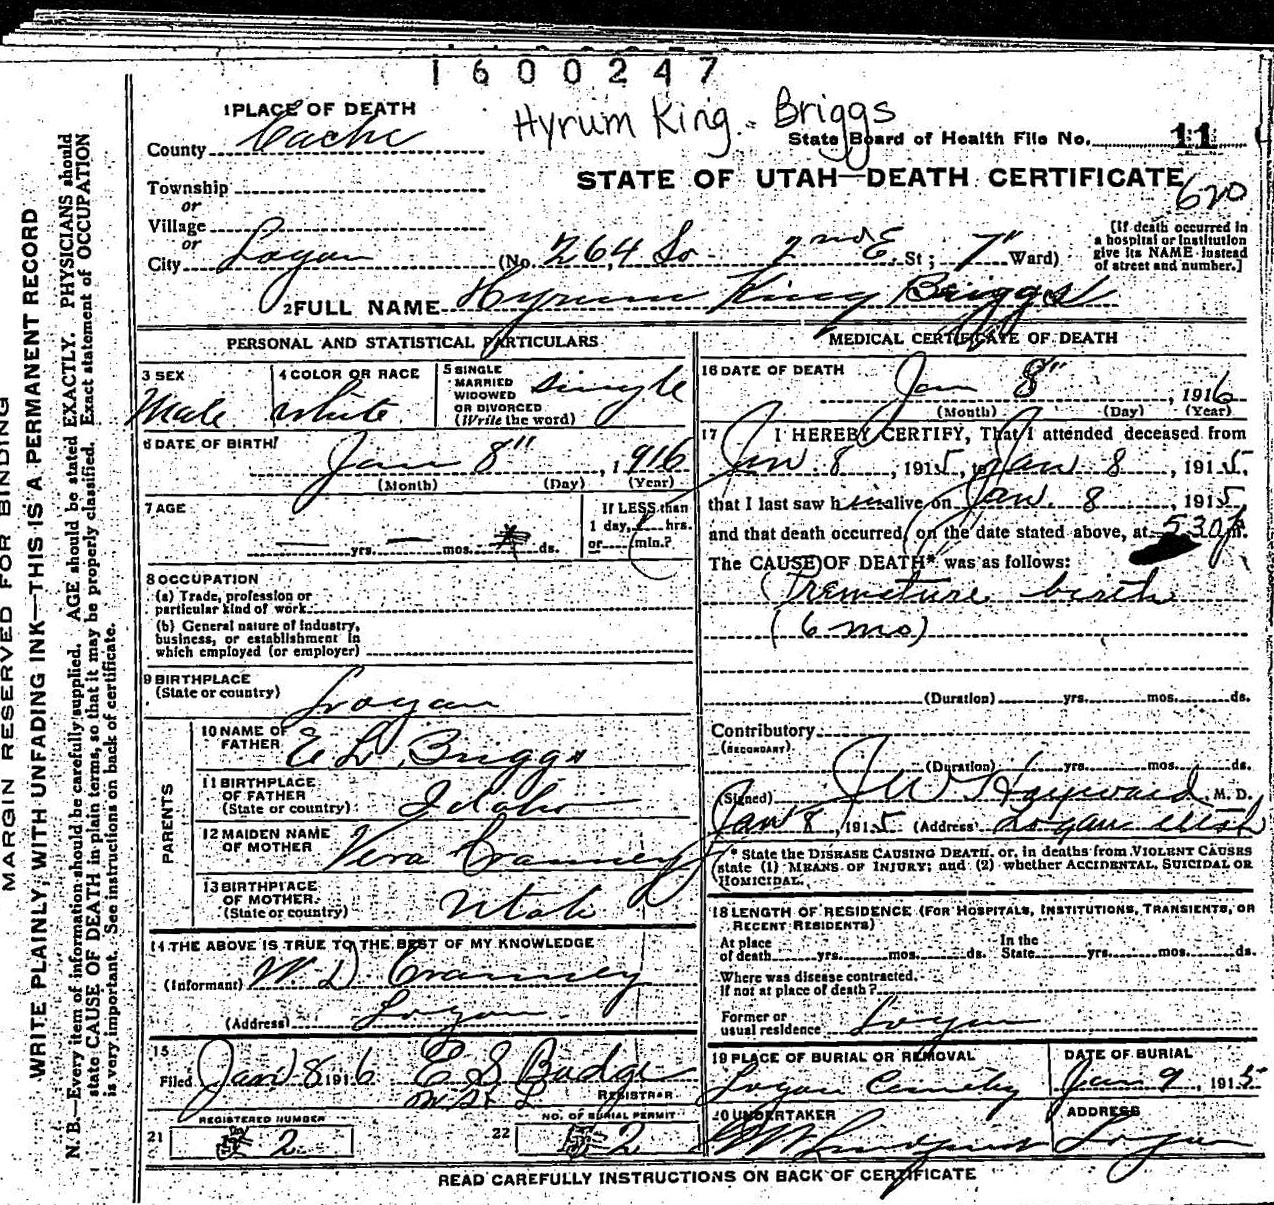 1600247
1 PLACE OF DEATH
Hyrum King Briggs
County Cache
State Board of Health File No. 11
STATE OF UTAH—DEATH CERTIFICATE
620
Township
or
Village
or
City Logan (No. 264 So 2nd E. St; 7" Ward)
[If death occurred in
a hospital or institution
give its NAME instead
of street and number.]
2 FULL NAME Hyrum King Briggs
PERSONAL AND STATISTICAL PARTICULARS
3 SEX
Male
4 COLOR OR RACE
white
5 SINGLE
MARRIED
WIDOWED
OR DIVORCED
(Write the word)
single
6 DATE OF BIRTH
Jan 8", 1916
(Month) (Day) (Year)
7 AGE
— yrs. — mos. ds.
If LESS than
1 day, hrs.
or min.?
8 OCCUPATION
(a) Trade, profession or
particular kind of work
(b) General nature of industry,
business, or establishment in
which employed (or employer)
9 BIRTHPLACE
(State or country) Logan
PARENTS
10 NAME OF
FATHER E L Briggs
11 BIRTHPLACE
OF FATHER
(State or country) Idaho
12 MAIDEN NAME
OF MOTHER Vera Cranney
13 BIRTHPLACE
OF MOTHER
(State or country) Utah
14 THE ABOVE IS TRUE TO THE BEST OF MY KNOWLEDGE
(Informant) W. D. Cranney
(Address) Logan
15
Filed Jan 8 1916 E S Budge
REGISTRAR
REGISTERED NUMBER
21 2
NO. OF BURIAL PERMIT
22 2
MEDICAL CERTIFICATE OF DEATH
16 DATE OF DEATH
Jan 8", 1916
(Month) (Day) (Year)
17 I HEREBY CERTIFY, That I attended deceased from
Jan. 8, 1915, to Jan 8, 1915,
that I last saw him alive on Jan. 8, 1915
and that death occurred, on the date stated above, at 5 30 p m.
The CAUSE OF DEATH* was as follows:
Premeture birth
(6 mo)
(Duration) yrs. mos. ds.
Contributory
(SECONDARY)
(Duration) yrs. mos. ds.
(Signed) J W Hayward M. D.
Jan 8, 1915 (Address) Logan Utah
* State the DISEASE CAUSING DEATH, or, in deaths from VIOLENT CAUSES
state (1) MEANS OF INJURY; and (2) whether ACCIDENTAL, SUICIDAL OR
HOMICIDAL.
18 LENGTH OF RESIDENCE (FOR HOSPITALS, INSTITUTIONS, TRANSIENTS, OR
RECENT RESIDENTS)
At place
of death yrs. mos. ds.
In the
State yrs. mos. ds.
Where was disease contracted.
If not at place of death?
Former or
usual residence Logan
19 PLACE OF BURIAL OR REMOVAL
Logan Cemetery
DATE OF BURIAL
Jan 9, 1915
20 UNDERTAKER
ADDRESS
Logan
READ CAREFULLY INSTRUCTIONS ON BACK OF CERTIFICATE
MARGIN RESERVED FOR BINDING
WRITE PLAINLY, WITH UNFADING INK—THIS IS A PERMANENT RECORD
N. B.—Every item of information should be carefully supplied. AGE should be stated EXACTLY. PHYSICIANS should
state CAUSE OF DEATH in plain terms, so that it may be properly classified. Exact statement of OCCUPATION
is very important. See instructions on back of certificate.